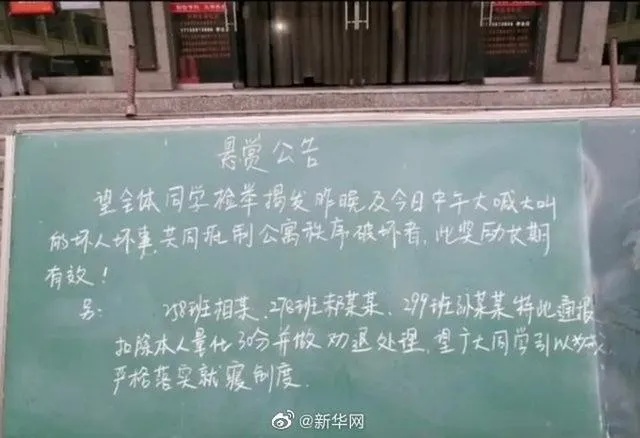 悬赏公告
望全体同学检举揭发昨晚及今日中午大喊大叫
的坏人坏事,共同抵制公寓秩序破坏者,此奖励长期
有效!
另: 258班相某、278班郝某某、299班孙某某特此通报
扣除本人量化30分并做劝退处理,望广大同学引以为戒
严格落实就寝制度.
@新华网